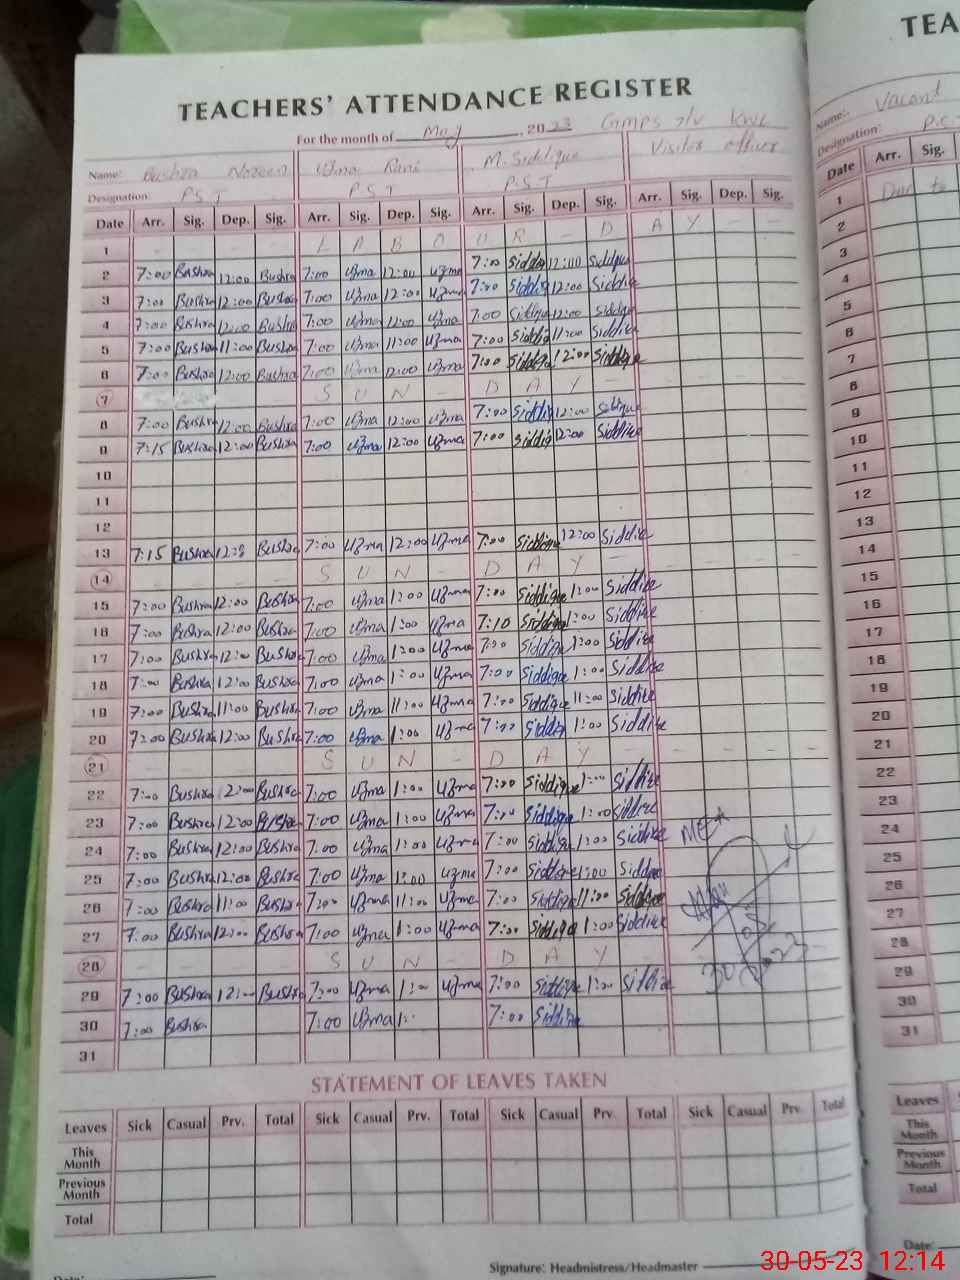 TEACHERS' ATTENDANCE REGISTER
For the month of May, 2023 GMPS 7/V KWL
Name: Bushra Noreen Uzma Rani M. Siddique Visitor officer
Designation: P.S.T P.S.T P.S.T
Date Arr. Sig. Dep. Sig. Arr. Sig. Dep. Sig. Arr. Sig. Dep. Sig. Arr. Sig. Dep. Sig.
1 L A B O U R - D A Y
2 7:00 Bushra 12:00 Bushra 7:00 Uzma 12:00 Uzma 7:00 Siddiq 12:00 Siddique
3 7:00 Bushra 12:00 Bushra 7:00 Uzma 12:00 Uzma 7:00 Siddiq 12:00 Siddique
4 7:00 Bushra 12:00 Bushra 7:00 Uzma 12:00 Uzma 7:00 Siddique 12:00 Siddique
5 7:00 Bushra 11:00 Bushra 7:00 Uzma 11:00 Uzma 7:00 Siddiq 11:00 Siddique
6 7:00 Bushra 12:00 Bushra 7:00 Uzma 12:00 Uzma 7:00 Siddique 12:00 Siddique
7 S U N - D A Y
8 7:00 Bushra 12:00 Bushra 7:00 Uzma 12:00 Uzma 7:00 Siddiq 12:00 Siddique
9 7:15 Bushra 12:00 Bushra 7:00 Uzma 12:00 Uzma 7:00 Siddiq 12:00 Siddique
10
11
12
13 7:15 Bushra Bushra 7:00 Uzma 12:00 Uzma 7:00 Siddique 12:00 Siddike
14 S U N - D A Y
15 7:00 Bushra 12:00 Bushra 7:00 Uzma 1:00 Uzma 7:00 Siddique 1:00 Siddike
16 7:00 Bushra 12:00 Bushra 7:00 Uzma 1:00 Uzma 7:10 Siddique 1:00 Siddike
17 7:00 Bushra 12:00 Bushra 7:00 Uzma 1:00 Uzma 7:00 Siddique 1:00 Siddike
18 7:00 Bushra 12:00 Bushra 7:00 Uzma 1:00 Uzma 7:00 Siddique 1:00 Siddike
19 7:00 Bushra 11:00 Bushra 7:00 Uzma 11:00 Uzma 7:00 Siddique 11:00 Siddike
20 7:00 Bushra 12:00 Bushra 7:00 Uzma 1:00 Uzma 7:00 Siddiq 1:00 Siddike
21 S U N - D A Y
22 7:00 Bushra 12:00 Bushra 7:00 Uzma 1:00 Uzma 7:00 Siddique 1:00 Siddike
23 7:00 Bushra 12:00 Bushra 7:00 Uzma 1:00 Uzma 7:00 Siddique 1:00 Siddike MEA
24 7:00 Bushra 12:00 Bushra 7:00 Uzma 1:00 Uzma 7:00 Siddique 1:00 Siddike
25 7:00 Bushra 12:00 Bushra 7:00 Uzma 1:00 Uzma 7:00 Siddique 1:00 Siddike
26 7:00 Bushra 11:00 Bushra 7:00 Uzma 11:00 Uzma 7:00 Siddique 11:00 Siddique
27 7:00 Bushra 12:00 Bushra 7:00 Uzma 1:00 Uzma 7:00 Siddique 1:00 Siddike
28 S U N - D A Y 30 05 2023
29 7:00 Bushra 12:00 Bushra 7:00 Uzma 1:00 Uzma 7:00 Siddique 1:00 Siddike
30 7:00 Bushra 7:00 Uzma 1: 7:00 Siddique
31
STATEMENT OF LEAVES TAKEN
Leaves Sick Casual Prv. Total Sick Casual Prv. Total Sick Casual Prv. Total Sick Casual Prv. Total
This Month
Previous Month
Total
Date:
Signature: Headmistress/Headmaster
TEA
Name: Vacant
Designation: P.S.T
Date Arr. Sig.
1
2
3
4
5
6
7
8
9
10
11
12
13
14
15
16
17
18
19
20
21
22
23
24
25
26
27
28
29
30
31
Leaves
This Month
Previous Month
Total
Date:
30-05-23 12:14